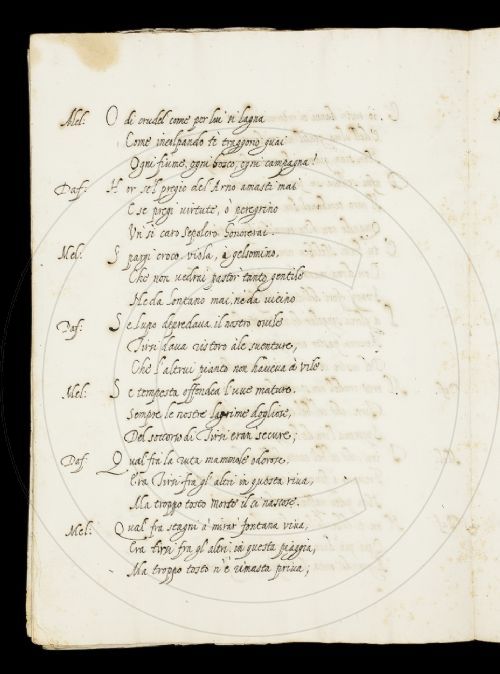 Mel: O di crudel come per lui si lagna
Come incolpando te traggono guai
Ogni fiume, ogni bosco, ogni campagna!
Daf: Hor se'l pregio del Arno amasti mai
E se pregi virtute, ò peregrino
Un si caro sepolcro honorerai.
Mel: Spargi croco viola, ò gelsomino,
Che non vedrai pastor tanto gentile
Ne da lontano mai, ne da vicino
Daf: Se lupo depredava il nostro ovile
Tirsi dava ristoro à le sventure,
Che l'altrui pianto non haveva à vile
Mel: Se tempesta offendea l'uve mature.
Sempre le nostre lagrime dogliose,
Del soccorso di Tirsi eran secure;
Daf: Qual frà la ruta mammole odorose.
Era Tirsi fra gl'altri in questa riva,
Ma troppo tosto morte il ci nascose.
Mel: Qual fra stagni à mirar fontana viva,
Era Tirsi fra gl'altri in questa piaggia,
Ma troppo tosto n'è rimasta priva;